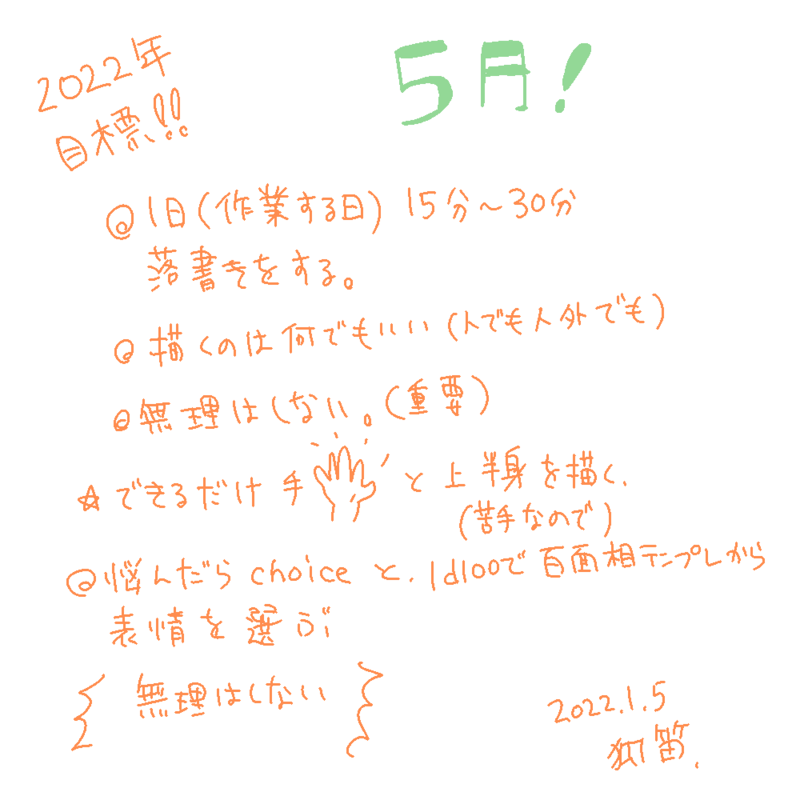 2022年
目標!!
5月!
@1日(作業する日) 15分~30分
落書きをする。
@描くのは何でもいい(人でも人外でも)
@無理はしない。(重要)
☆できるだけ手と上半身を描く、
(苦手なので)
@悩んだらchoiceと、1d100で百面相テンプレから
表情を選ぶ
無理はしない
2022.1.5
笛.